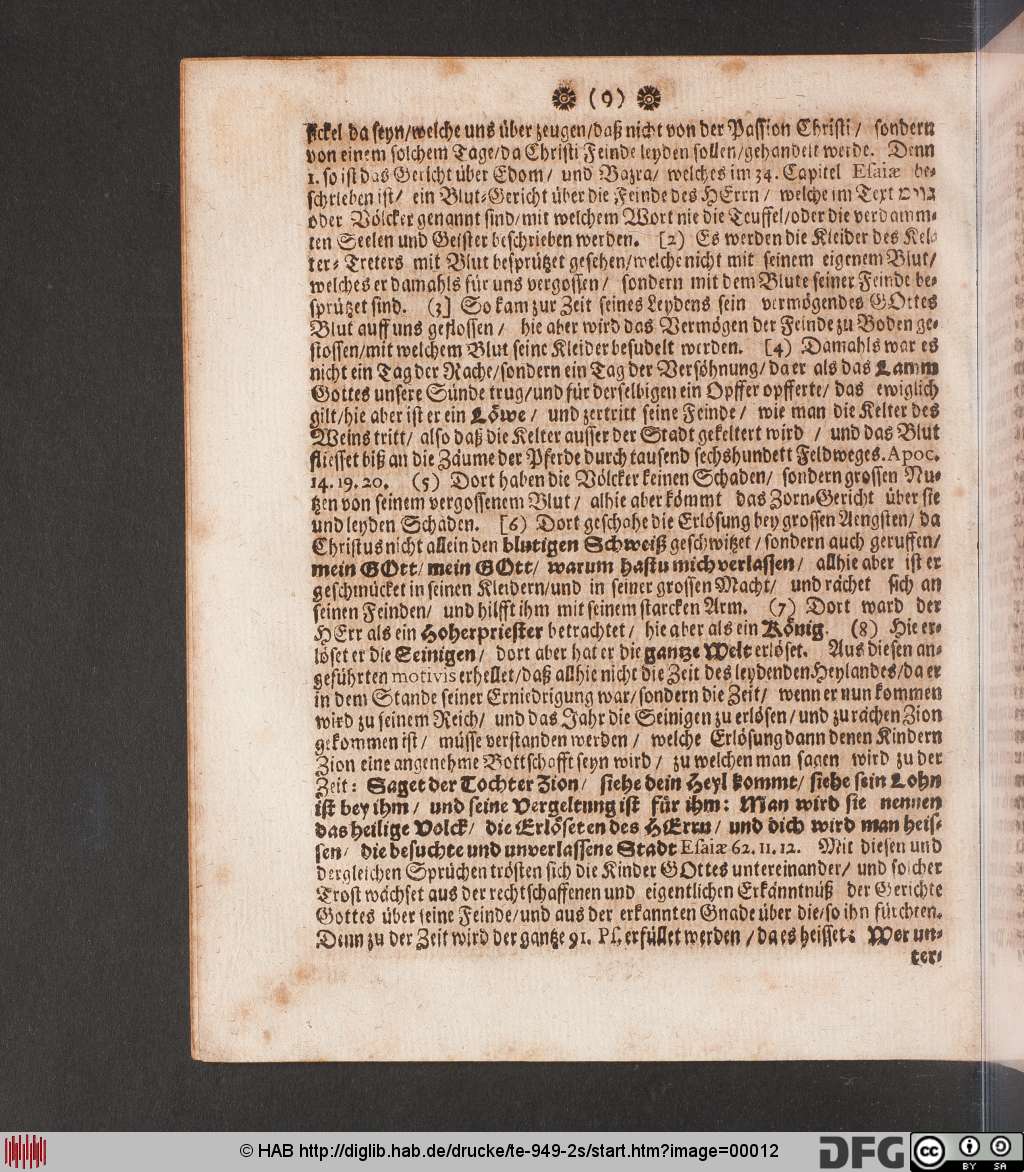 (9)
sickel da seyn/welche uns über zeugen/daß nicht von der Passion Christi/ sondern
von einem solchem Tage/da Christi Feinde leyden sollen/gehandelt werde. Denn
1. so ist das Gericht über Edom/ und Bazra/ welches im 34. Capitel Esaiæ be-
schrieben ist/ ein Blut-Gericht über die Feinde des HErrn/ welche im Text גוים
oder Völcker genannt sind/mit welchem Wort nie die Teuffel/oder die verdamm-
ten Seelen und Geister beschrieben werden. [2) Es werden die Kleider des Kel-
ter-Treters mit Blut besprützet gesehen/welche nicht mit seinem eigenem Blut/
welches er damahls für uns vergossen/ sondern mit dem Blute seiner Feinde be-
sprützet sind. (3] So kam zur Zeit seines Leydens sein vermögendes GOttes
Blut auff uns geflossen/ hie aber wird das Vermögen der Feinde zu Boden ge-
stossen/mit welchem Blut seine Kleider besudelt werden. [4) Damahls war es
nicht ein Tag der Rache/sondern ein Tag der Versöhnung/da er als das Lamm
Gottes unsere Sünde trug/und für derselbigen ein Opffer opfferte/das ewiglich
gilt/hie aber ist er ein Löwe/ und zertritt seine Feinde/ wie man die Kelter des
Weins tritt/ also daß die Kelter ausser der Stadt gekeltert wird / und das Blut
fliesset biß an die Zäume der Pferde durch tausend sechshundett Feldweges. Apoc.
14. 19. 20. (5) Dort haben die Völcker keinen Schaden/ sondern grossen Nu-
tzen von seinem vergossenem Blut/ alhie aber kömmt das Zorn-Gericht über sie
und leyden Schaden. [6) Dort geschahe die Erlösung bey grossen Aengsten/ da
Christus nicht allein den blutigen Schweiß geschwitzet/sondern auch geruffen/
mein GOtt/ mein GOtt/ warum hastu mich verlassen/ allhie aber ist er
geschmücket in seinen Kleidern/und in seiner grossen Macht/ und rächet sich an
seinen Feinden/ und hilfft ihm mit seinem starcken Arm. (7) Dort ward der
HErr als ein Hoherpriester betrachtet/ hie aber als ein König. (8) Hie er-
löset er die Seinigen/ dort aber hat er die gantze Welt erlöset. Aus diesen an-
geführten motivis erhellet/daß allhie nicht die Zeit des leydenden Heylandes/da er
in dem Stande seiner Erniedrigung war/sondern die Zeit/ wenn er nun kommen
wird zu seinem Reich/ und das Jahr die Seinigen zu erlösen/und zu rächen Zion
gekommen ist/ müsse verstanden werden/ welche Erlösung dann denen Kindern
Zion eine angenehme Bottschafft seyn wird/ zu welchen man sagen wird zu der
Zeit: Saget der Tochter Zion/ siehe dein Heyl kommt/ siehe sein Lohn
ist bey ihm/ und seine Vergeltung ist für ihm: Man wird sie nennen
das heilige Volck/ die Erlöseten des HErrn/ und dich wird man heis-
sen/ die besuchte und unverlassene Stadt Esaiæ 62. 11. 12. Mit diesen und
dergleichen Sprüchen trösten sich die Kinder GOttes untereinander/ und solcher
Trost wächset aus der rechtschaffenen und eigentlichen Erkänntnüß der Gerichte
Gottes über seine Feinde/und aus der erkannten Gnade über die/so ihn fürchten.
Denn zu der Zeit wird der gantze 91. Ps. erfüllet werden/da es heisset: Wer un-
ter-
© HAB http://diglib.hab.de/drucke/te-949-2s/start.htm?image=00012
DFG
cc
BY SA